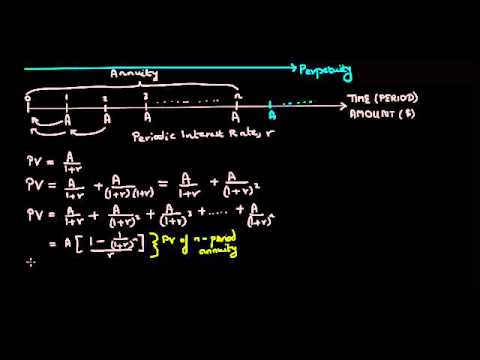 Perpetuity
Annuity
0 1 2 3 ........ n ......
A A A A A
TIME (PERIOD)
AMOUNT ($)
Periodic Interest Rate, r
PV = A/(1+r)
PV = A/(1+r) + A/((1+r)(1+r)) = A/(1+r) + A/(1+r)²
PV = A/(1+r) + A/(1+r)² + A/(1+r)³ + ..... + A/(1+r)ⁿ
= A [ (1 - 1/(1+r)ⁿ)/r ] } PV of n-period
annuity